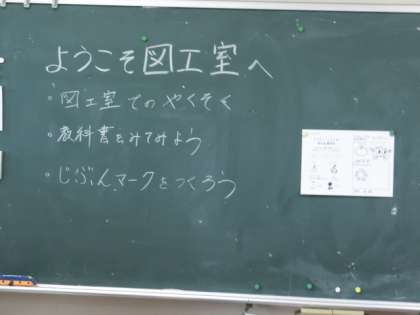 ようこそ図工室へ
・図工室でのやくそく
・教科書をみてみよう
・じぶんマークをつくろう